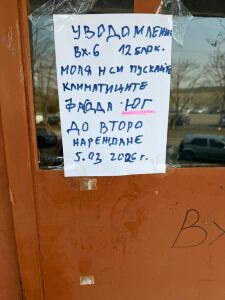 УВЕДОМЛЕНИЕ
Вх. 6 12 БЛОК.
МОЛЯ НЕ СИ ПУСКАЙТЕ
КЛИМАТИЦИТЕ
ФАСАДА ЮГ
ДО ВТОРО
НАРЕЖДАНЕ
5.03 2026 г.
В>